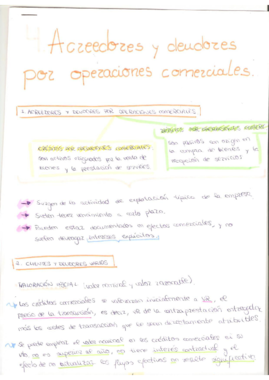 4 Acreedores y deudores
por operaciones comerciales.
1. ACREEDORES Y DEUDORES POR OPERACIONES COMERCIALES
CRÉDITOS POR OPERACIONES COMERCIALES
son activos originados por la venta de
bienes y la prestación de servicios
DÉBITOS POR OPERACIONES COMERCIALES
son pasivos que surgen en
la compra de bienes y la
recepción de servicios
→ Surgen de la actividad de explotación típica de la empresa
→ Suelen tener vencimiento a corto plazo.
→ Pueden estar documentados en efectos comerciales, y no
suelen devengar intereses explícitos.
2. CLIENTES Y DEUDORES VARIOS
VALORACIÓN INICIAL (valor nominal y valor razonable)
Los créditos comerciales se valorarán inicialmente a VR, el
precio de la transacción, es decir, el de la contraprestación entregada
más los costes de transacción que le sean directamente atribuibles
Se puede emplear el valor nominal en los créditos comerciales si su
vto. no es superior al año, no tiene interés contractual y el
efecto de no actualizar los flujos efectivos no resulte significativo